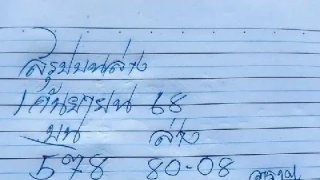 สรุปบนล่าง
1 กันยายน 68
บน ล่าง
578 80-08